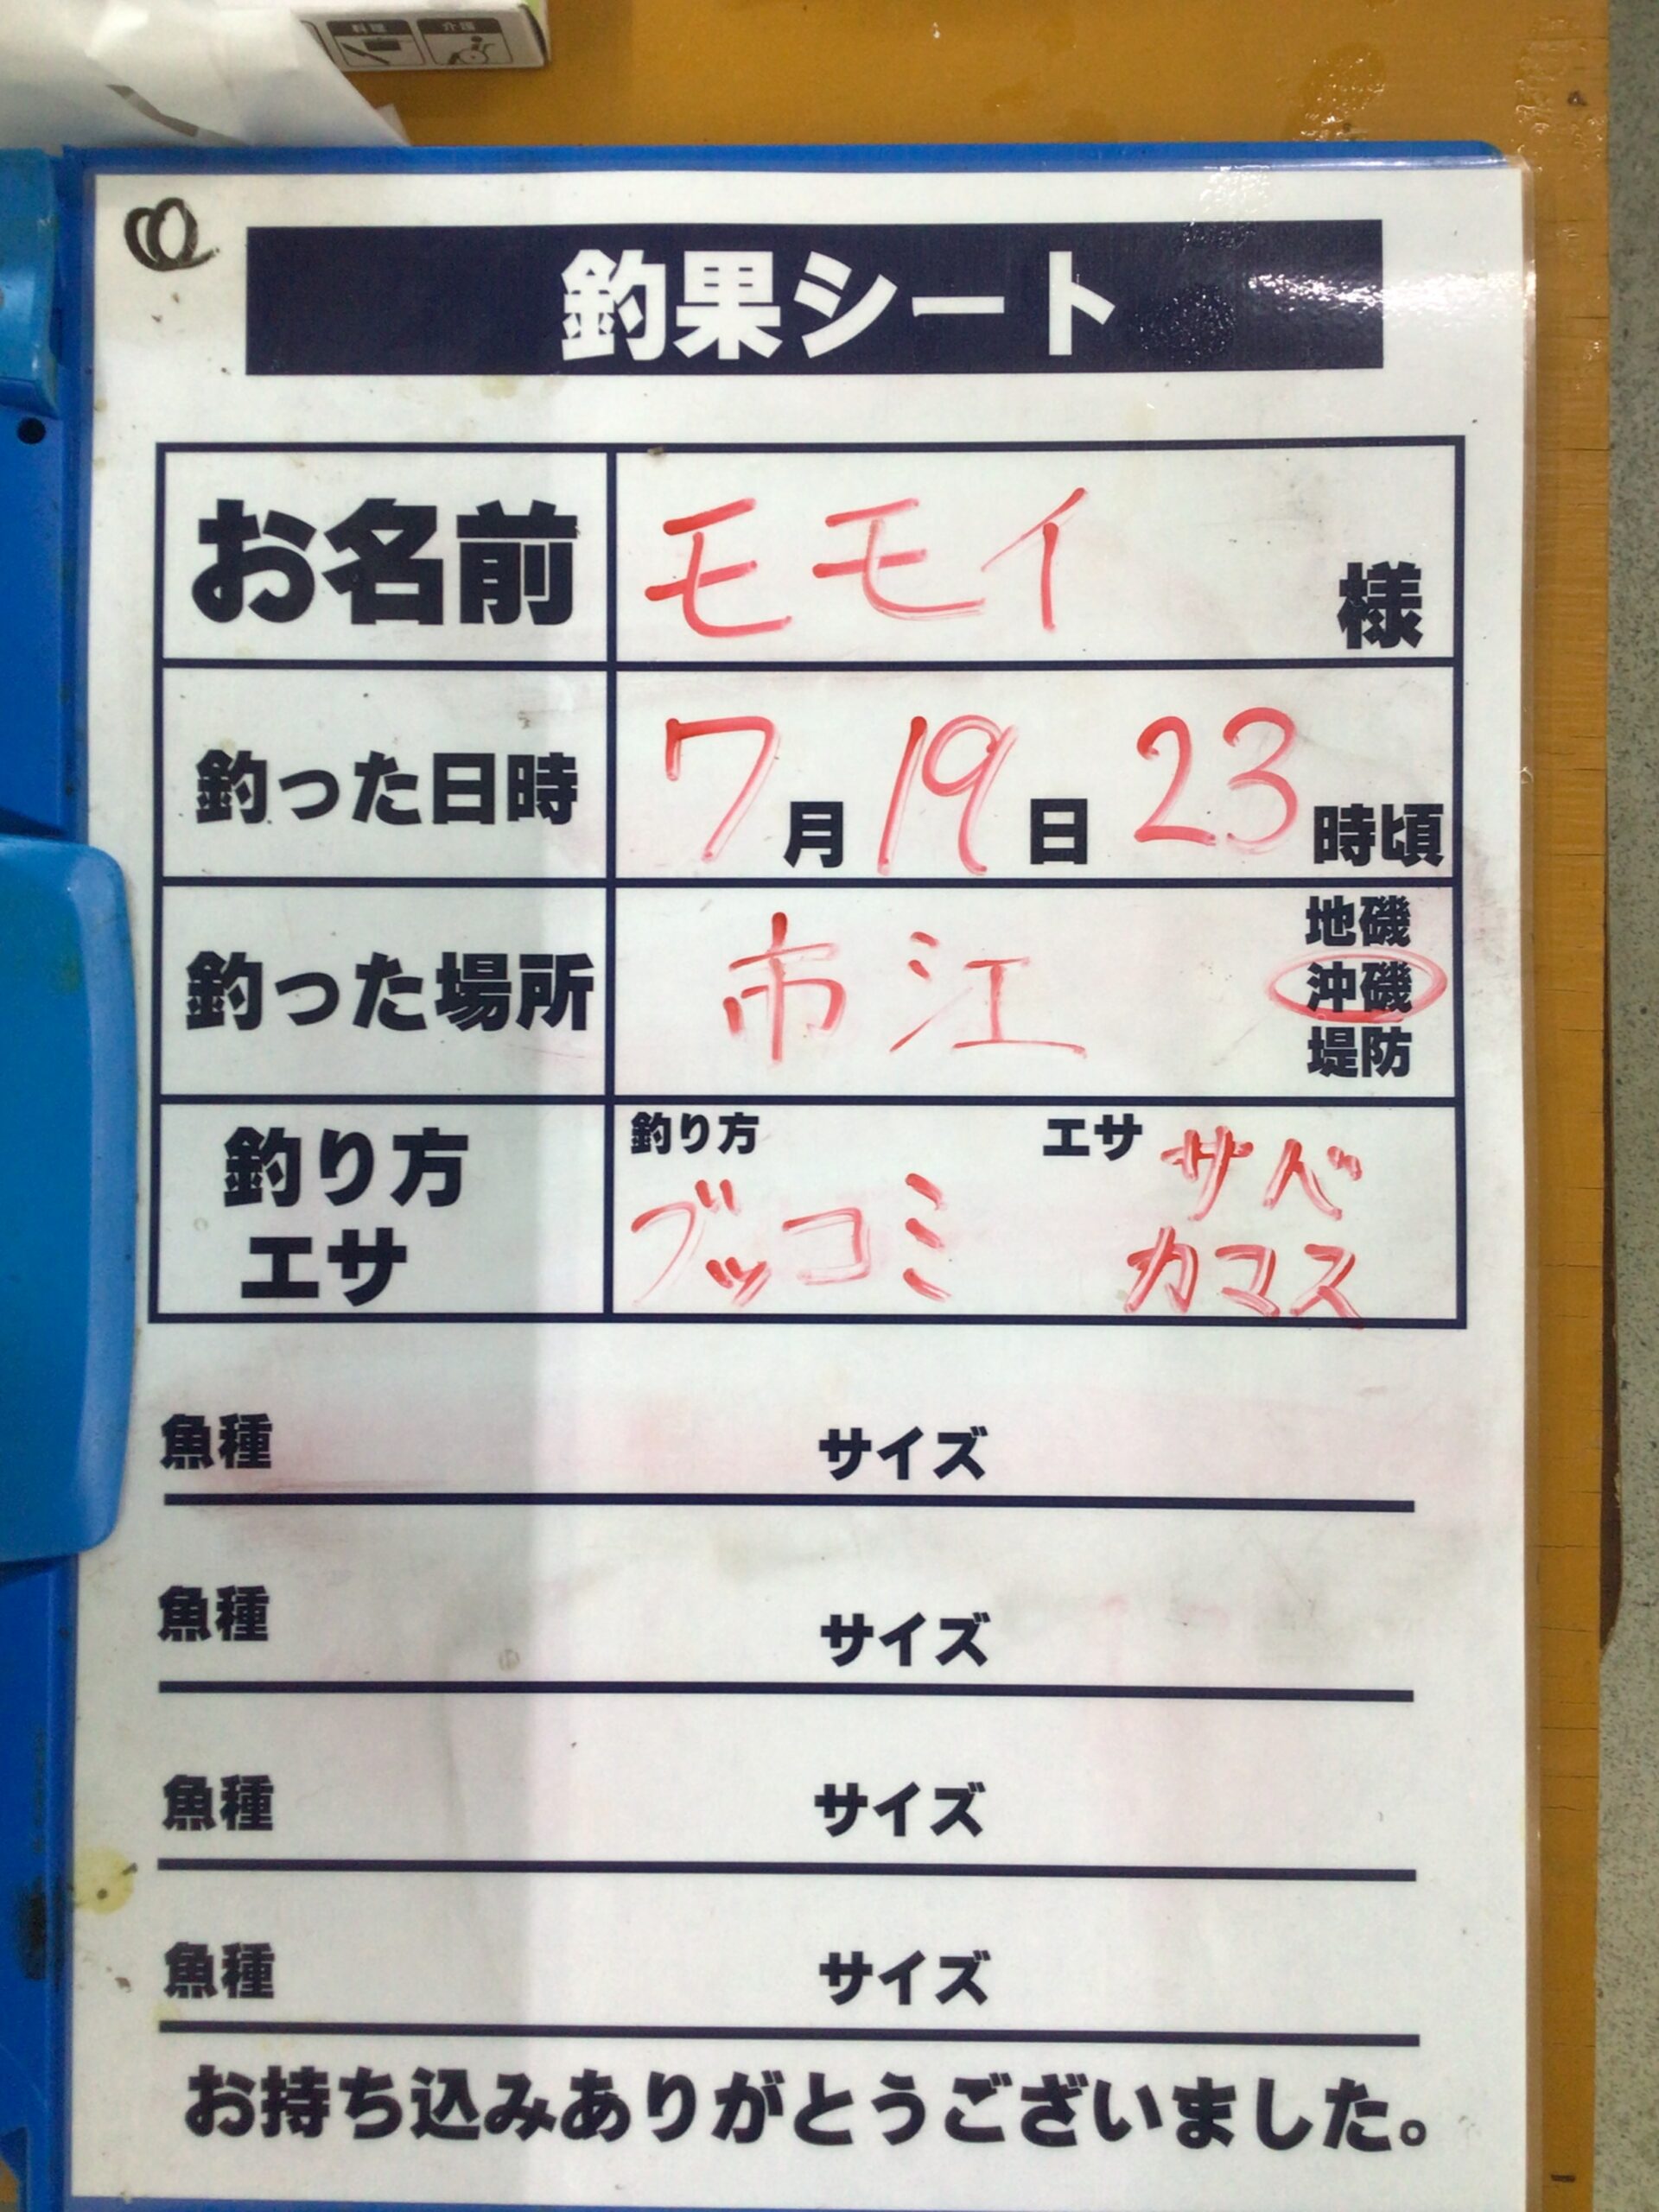 料理 介護
釣果シート
お名前 モモイ 様
釣った日時 7月19日23時頃
釣った場所 市江 地磯
沖磯
堤防
釣り方 エサ
釣り方 ブッコミ エサ サバ
カマス
魚種 サイズ
魚種 サイズ
魚種 サイズ
魚種 サイズ
お持ち込みありがとうございました。